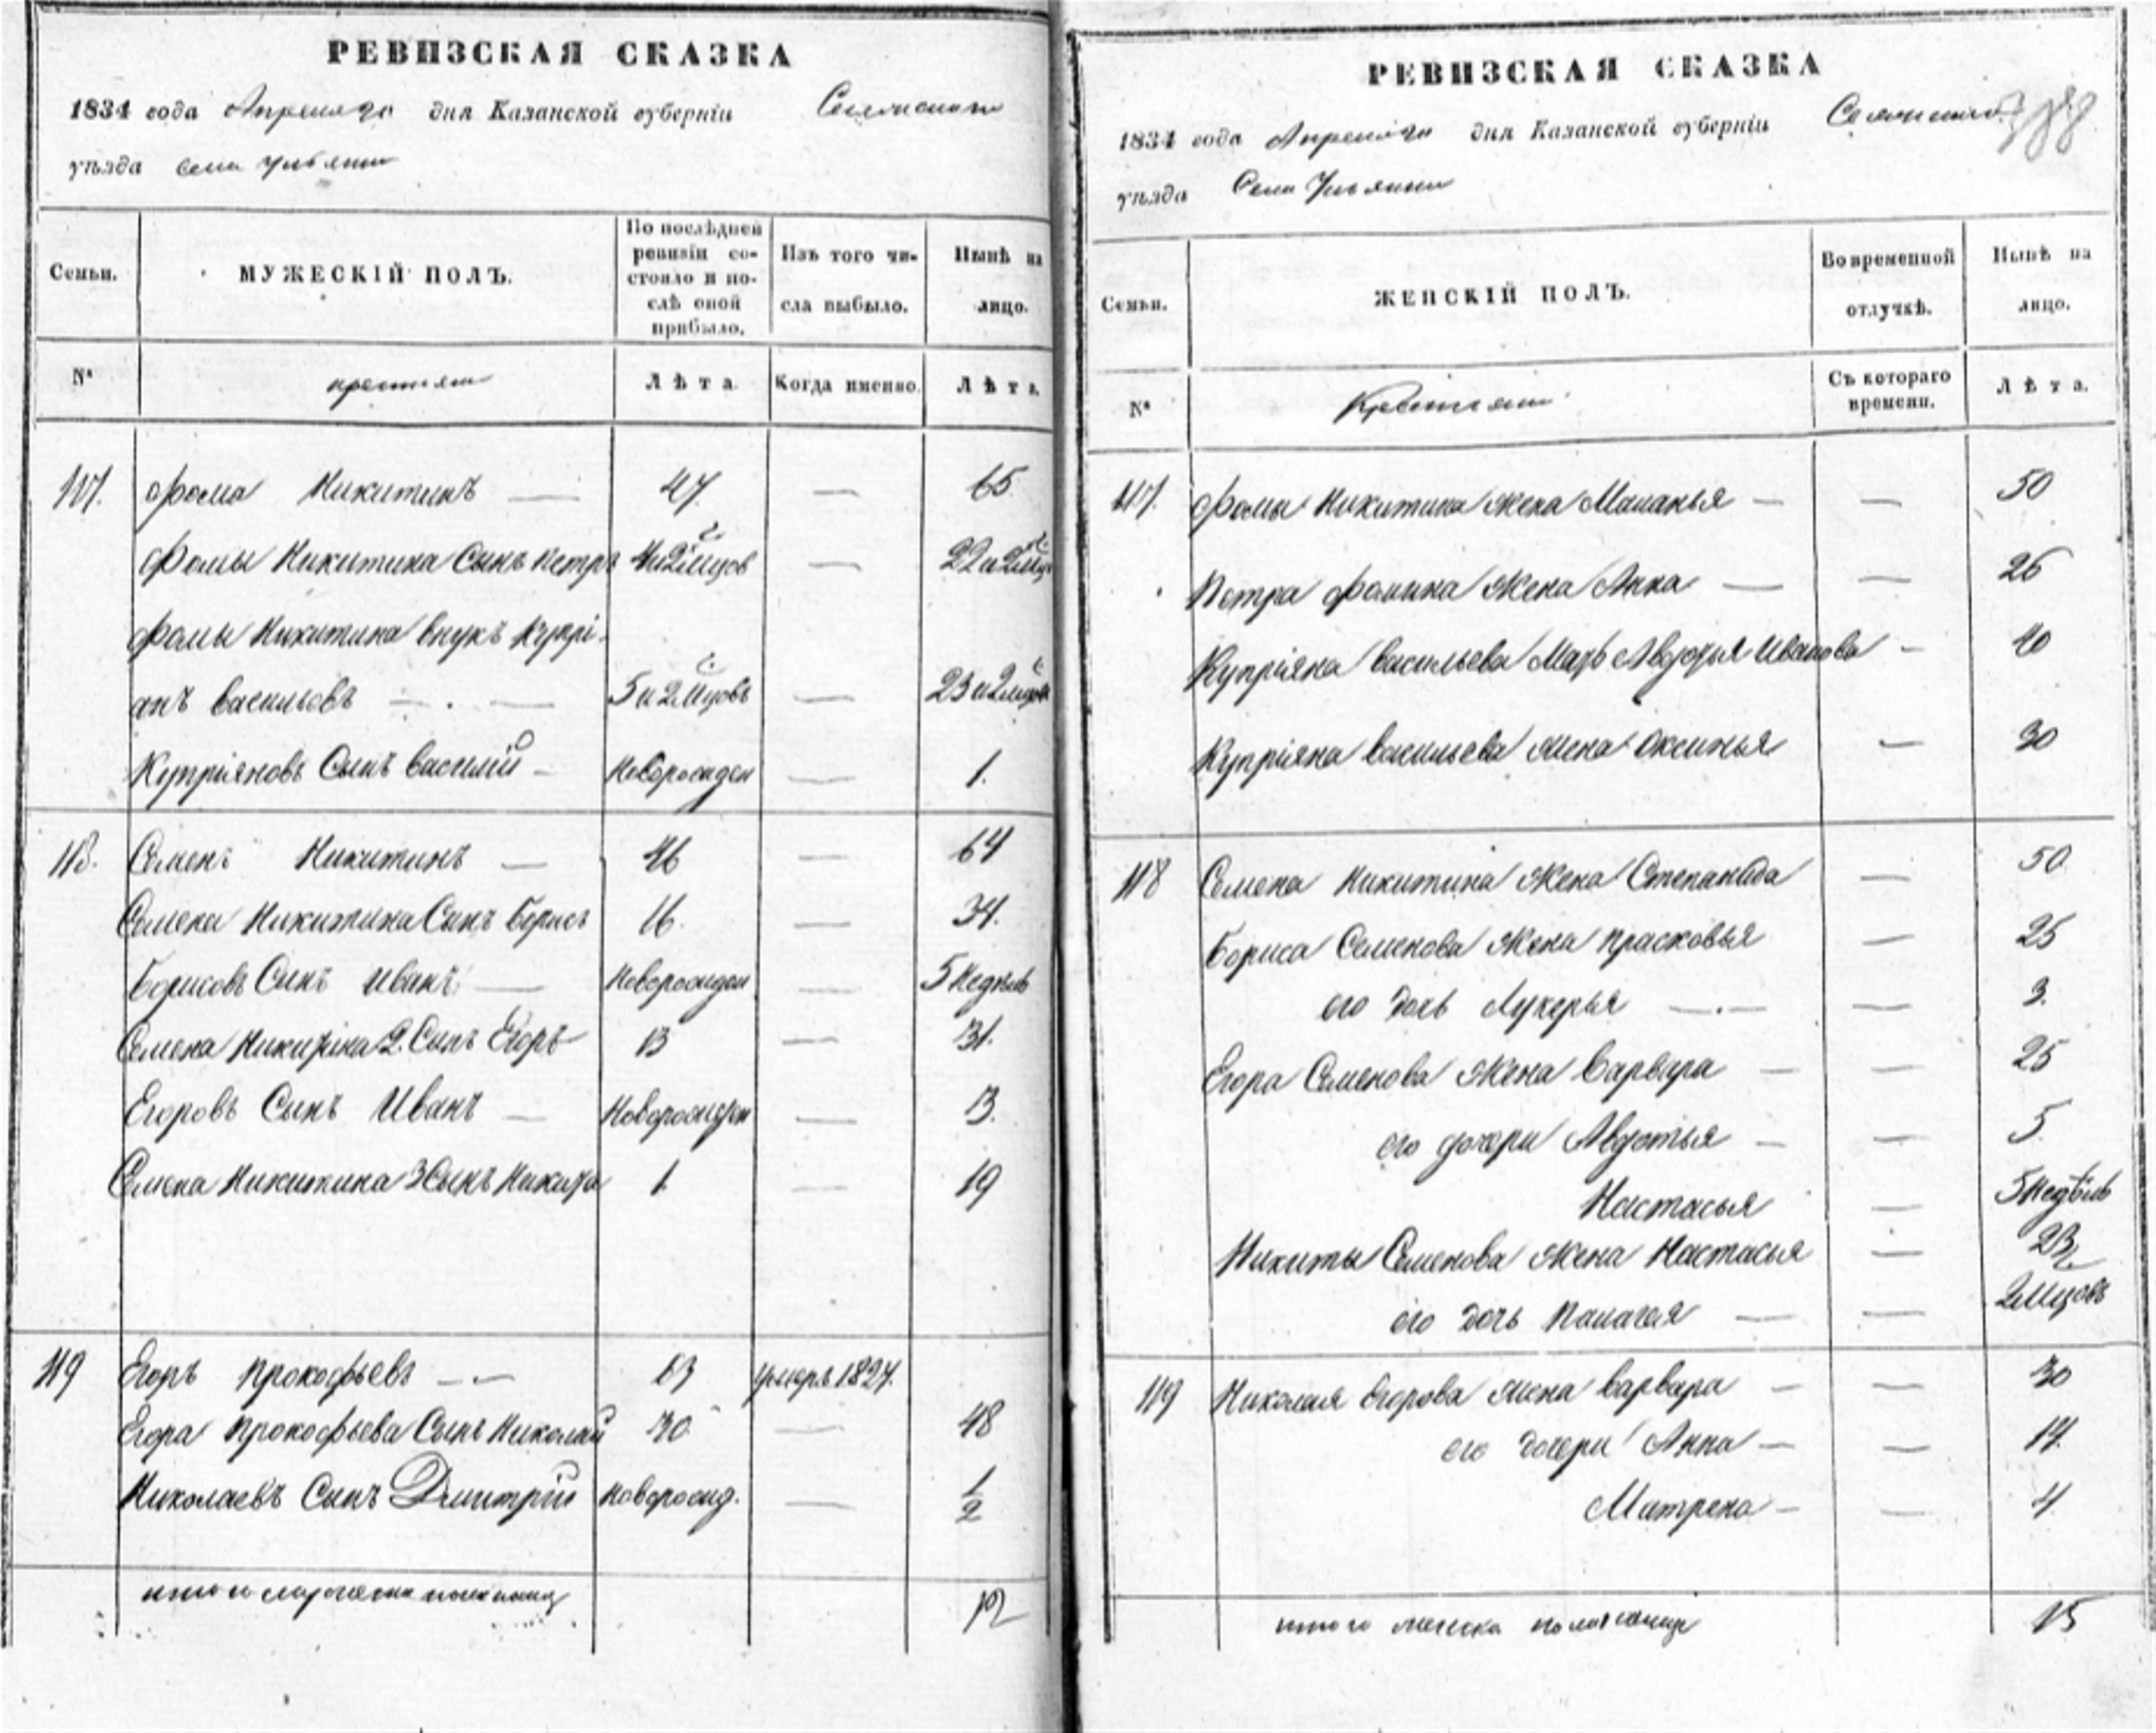 РЕВИЗСКАЯ СКАЗКА
1834 года Апреля дня Казанской губерніи
уѣзда села
Семьи.
МУЖЕСКІЙ ПОЛЪ.
По послѣдней
ревизіи со-
стояло и по-
слѣ оной
прибыло.
Изъ того чи-
сла выбыло.
Нынѣ на
лицо.
№
крестьяне
Лѣта.
Когда именно.
Лѣта.
117. Фома Никитинъ — 47. — 65
Фомы Никитина Сынъ Петръ 4 и 2 мцов — 22 и 2
Фомы Никитина внукъ Купрі-
анъ Васильевъ — . — 5 и 2 мцовъ — 23 и 2
Купріяновъ Сынъ Василий — Новорожден — 1.
118. Семенъ Никитинъ — 46 — 64
Семена Никитина Сынъ Борисъ 16. — 34.
Борисовъ Сынъ Иванъ — Новорожден — 5 Недѣль
Семена Никитина 2. Сынъ Егоръ 13 — 31.
Егоровъ Сынъ Иванъ — Новорожден — 13.
Семена Никитина 3 Сынъ Никита 1. — 19
119 Егоръ Прокофьевъ — 63 умеръ 1827.
Егора Прокофьева Сынъ Николай 30 — 48
Николаевъ Сынъ Дмитрій Новорожд. — 1/2
итого 12
РЕВИЗСКАЯ СКАЗКА
1834 года Апреля дня Казанской губерніи
уѣзда Села
Семьи.
ЖЕНСКІЙ ПОЛЪ.
Во временной
отлучкѣ.
Нынѣ на
лицо.
№
Крестьяне
Съ котораго
времени.
Лѣта.
117. Фомы Никитина Жена Маланья — — 50
Петра Фомина Жена Анна — — 26
Купріяна Васильева Мать Авдотья Иванова — 40
Купріяна Васильева жена Оксинья — 30
118 Семена Никитина Жена Степанида — 50
Бориса Семенова Жена Прасковья — 25
его дочь Лукерья —.— — 3.
Егора Семенова Жена Варвара — — 25
его дочери Авдотья — — 5
Настасья — 5 Недѣль
Никиты Семенова Жена Настасья — 23
его дочь Палагея — — 2 мцовъ
119 Николая Егорова жена Варвара — — 30
его дочери Анна — — 14.
Матрена — — 4
итого женска пола 15